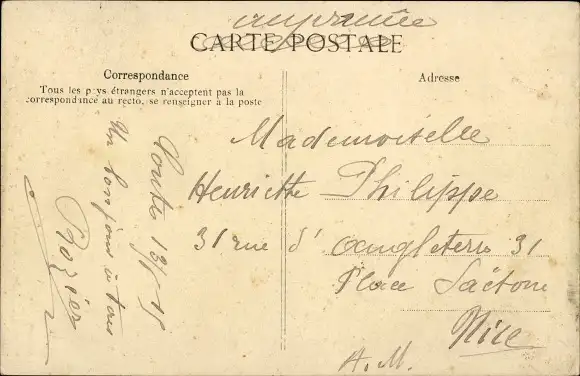 CARTE POSTALE
Correspondance
Tous les pays étrangers n'acceptent pas la
correspondance au recto, se renseigner à la poste
Un bonjour à tous
Rozier
Adresse
Mademoiselle
Henriette Philippe
31 rue d'angleterre 31
Place
Nice
A.M.